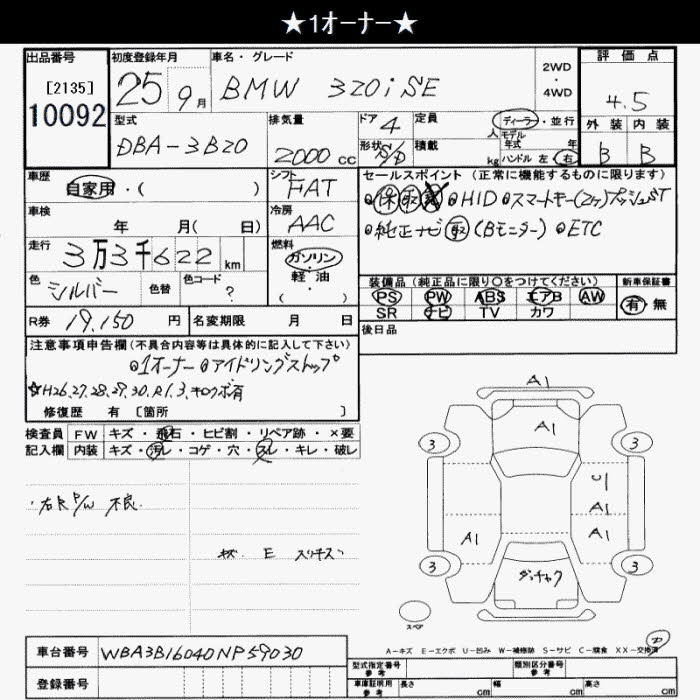 ★1オーナー★
出品番号 初度登録年月 車名・グレード 2WD ・ 4WD 評価点
[2135]
10092
25 9月 BMW 320i SE 4.5
型式 排気量 ドア 4 定員 人 ディーラー・並行 外装 内装
DBA-3B20 2000cc 形状 S/D 積載 kg モデル年式 年 B B
ハンドル 左 右
車歴 シフト セールスポイント (正常に機能するものに限ります)
自家用・( ) FAT 保 取 HID スマートキー(2ヶ)プッシュST
車検 年 月( 日) 冷房 AAC 純正ナビ 取 (Bモニター) ETC
走行 3万3千622km 燃料 ガソリン・軽・油・( )
色 シルバー 色替 色コード ? 装備品 (純正品に限り○をつけてください) 新車保証書
PS PW ABS エアB AW 有 無
SR ナビ TV カワ
R券 19,150円 名変期限 月 日 後日品
注意事項申告欄 (不具合内容等は具体的に記入して下さい)
1オーナー アイドリングストップ
☆H26.27.28.29.30.R1.3.キロクボ有
修復歴 有 [箇所 ]
検査員 FW キズ・飛石・ヒビ割・リペア跡・×要
記入欄 内装 キズ・汚レ・コゲ・穴・スレ・キレ・破レ
・右R P/W 不良.
E スリキズ
A1
A1
3 3
U1
A1
A1 A1
3 3
ダッチャク
スペア
A-キズ E-エクボ U-凹み W-補修跡 S-サビ C-腐食 XX-交換済
車台番号 WBA3B16040NP59030
型式指定番号 参考 類別区分番号 参考
登録番号 車庫証明用 参考 長さ cm 幅 cm 高さ cm